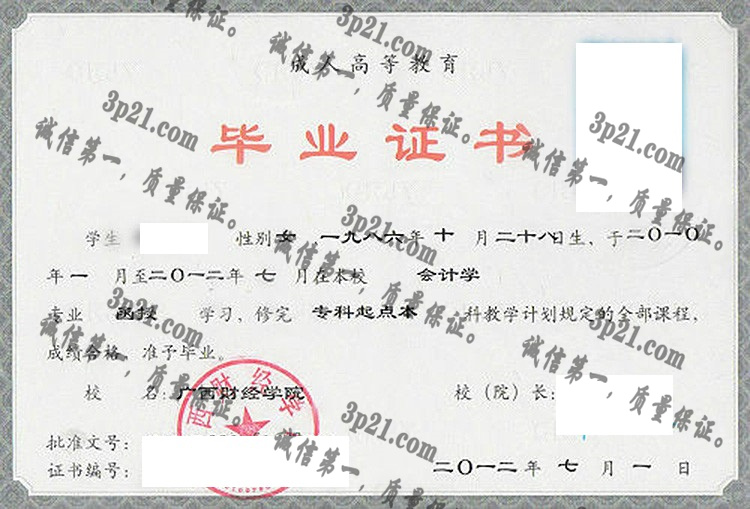 成人高等教育
毕业证书
学生 性别 女 一九八六年 十 月 二十八日生，于二〇一〇
年 一 月至二〇一二年 七 月在本校 会计学
专业 函授 学习，修完 专科起点本 科教学计划规定的全部课程，
成绩合格，准予毕业。
校 名：广西财经学院 校（院）长：
批准文号：
证书编号： 二〇一二年 七 月 一 日
西财经学
3p21.com
诚信第一，质量保证。
3p21.com
诚信第一，质量保证。
3p21.com
诚信第一，质量保证。
3p21.com
诚信第一，质量保证。
3p21.com
诚信第一，质量保证。
3p21.com
诚信第一，质量保证。
3p21.com
诚信第一，质量保证。
3p21.com
诚信第一，质量保证。
3p21.com
诚信第一，质量保证。